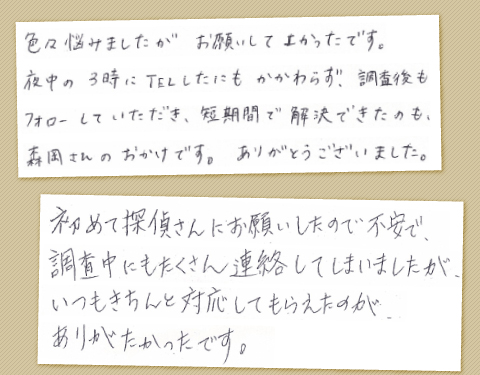 色々悩みましたが お願いして よかったです。
夜中の 3時に TELしたにも かかわらず、調査後も
フォローして いただき、短期間で 解決できたのも、
森岡さんの おかげです。 ありがとうございました。
初めて探偵さんにお願いしたので不安で、
調査中にもたくさん連絡してしまいましたが、
いつもきちんと対応してもらえたのが
ありがたかったです。